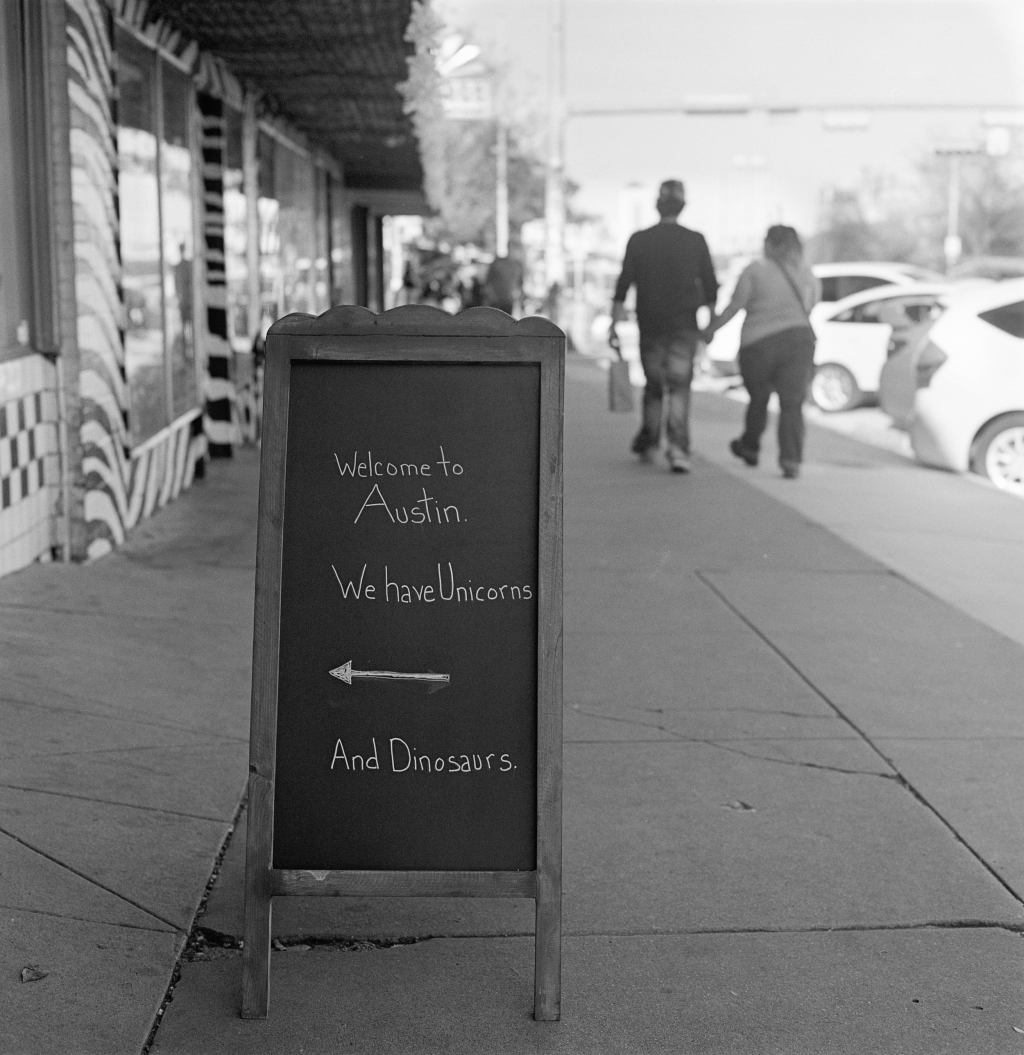 Welcome to
Austin.
We have Unicorns
And Dinosaurs.